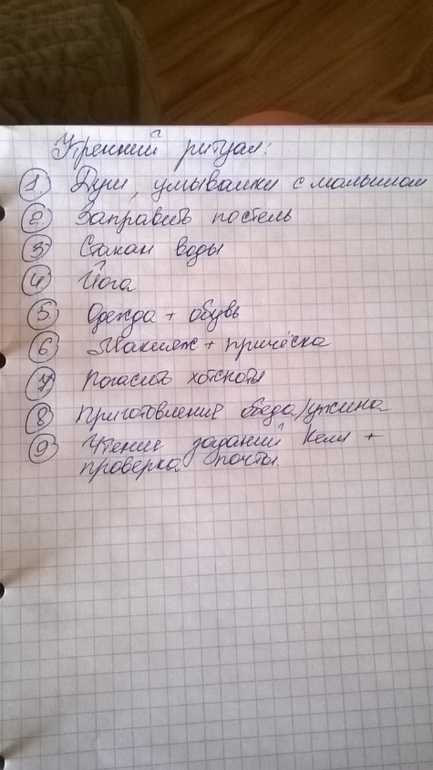 Утренний ритуал:
1 Душ, умывашки с малышом
2 Заправить постель
3 Стакан воды
4 Йога
5 Одежда + обувь
6 Макияж + причёска
7 Погасить хотспоты
8 Приготовление обеда/ужина
9 Чтение заданий Кели +
проверка почты.